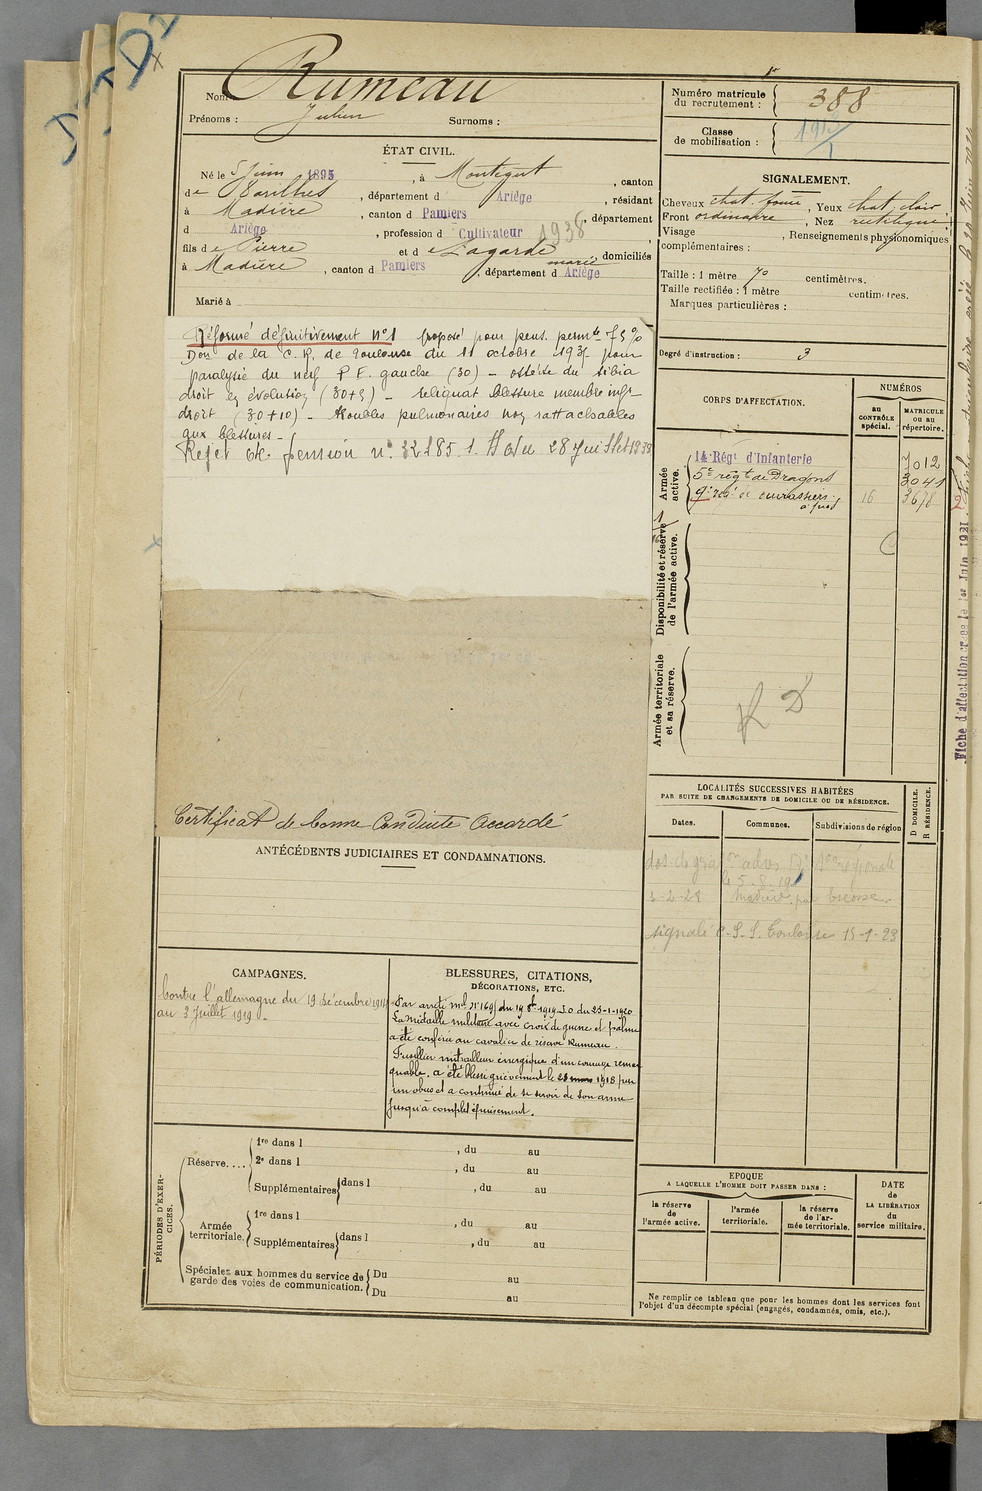 Nom Rumeau
Prénoms : Julien Surnoms :
Numéro matricule
du recrutement : 388
Classe
de mobilisation :
ÉTAT CIVIL.
Né le 5 Juin 1895, à Montégut, canton
de Varilhes, département d Ariège, résidant
à Madière, canton d Pamiers, département
d Ariège, profession d Cultivateur 1938
fils de Pierre et de Lagarde, domiciliés
à Madière, canton d Pamiers, département d Ariège
Marié à
SIGNALEMENT.
Cheveux chat. foncé, Yeux chat. clair
Front ordinaire, Nez rectiligne
Visage, Renseignements physionomiques
complémentaires :
Taille : 1 mètre 70 centimètres.
Taille rectifiée : 1 mètre centimètres.
Marques particulières :
Degré d'instruction : 3
Réformé définitivement n° 1 proposé pour pens. permte 75 %
de la C. R. de Toulouse du 11 octobre 193 pour
paralysie du nerf P E. gauche (30) - ostéite du tibia
droit en évolution (30+5) - reliquat blessure membre infr
droit (30+10) - troubles pulmonaires non rattachables
aux blessures -
Rejet pension n° 32185 du 28 Juillet 1938
Certificat de bonne Conduite Accordé
CORPS D'AFFECTATION.
NUMÉROS
au
CONTRÔLE
spécial.
MATRICULE
ou au
répertoire.
Armée
active.
14 Régt d'Infanterie 7012
5e régt de Dragons 3041
9e régt de cuirassiers 16 3678
à pied
Disponibilité et réserve
de l'armée active.
Armée territoriale
et sa réserve.
R D
Fiche d'affectation créée le 1er Juin 1921
LOCALITÉS SUCCESSIVES HABITÉES
PAR SUITE DE CHANGEMENTS DE DOMICILE OU DE RÉSIDENCE.
Dates. Communes. Subdivisions de région
D DOMICILE.
R RÉSIDENCE.
signalé C. S. S. Toulouse 15-1-23
ANTÉCÉDENTS JUDICIAIRES ET CONDAMNATIONS.
CAMPAGNES.
Contre l'allemagne du 19 décembre 1914
au 3 Juillet 1919 -
BLESSURES, CITATIONS,
DÉCORATIONS, ETC.
Par arrêté du 19 1919 J.O du 23-1-1920
La médaille militaire avec croix de guerre et palme
a été conférée au cavalier de réserve Rumeau.
Fusilier mitrailleur énergique d'un courage remar
quable. a été blessé grièvement le 28 mars 1918 par
un obus et a continué de se servir de son arme
jusqu'à complet épuisement.
PÉRIODES D'EXER-
CICES.
Réserve....
1re dans l, du au
2e dans l, du au
Supplémentaires dans l, du au
Armée
territoriale.
1re dans l, du au
Supplémentaires dans l, du au
Spéciales aux hommes du service de
garde des voies de communication.
Du au
Du au
EPOQUE
A LAQUELLE L'HOMME DOIT PASSER DANS :
la réserve
de
l'armée active.
l'armée
territoriale.
la réserve
de l'ar-
mée territoriale.
DATE
de
LA LIBÉRATION
du
service militaire.
Ne remplir ce tableau que pour les hommes dont les services font
l'objet d'un décompte spécial (engagés, condamnés, omis, etc.).